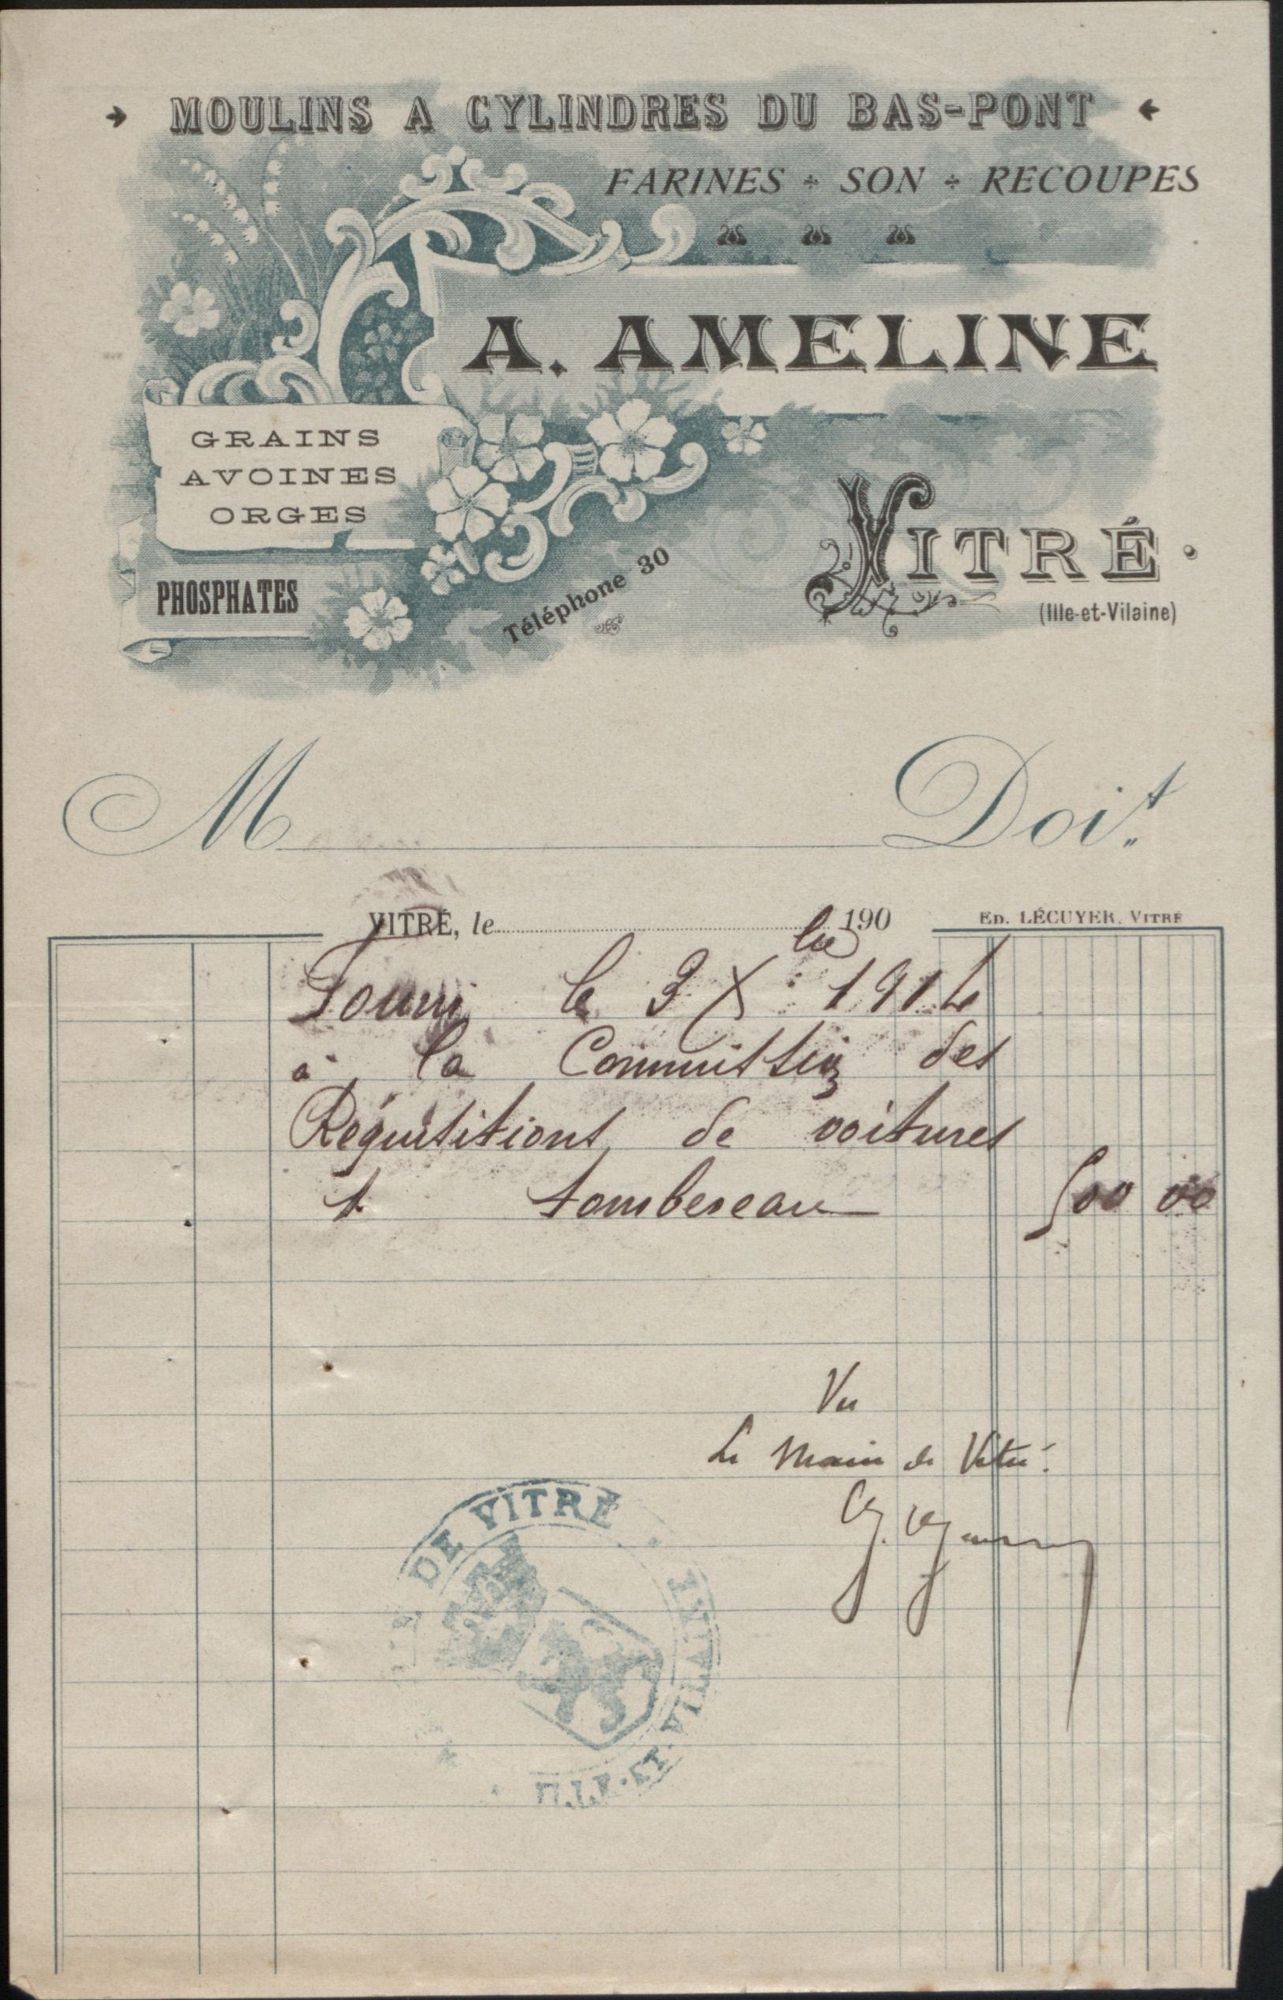 MOULINS A CYLINDRES DU BAS-PONT
FARINES ÷ SON ÷ RECOUPES
A. AMELINE
GRAINS
AVOINES
ORGES
PHOSPHATES
Téléphone 30
VITRÉ
(Ille-et-Vilaine)
M Doit
VITRÉ, le 190
ED. LÉCUYER, VITRÉ
Fourni le 3 Xbre 1914
à la Commission des
Réquisitions de voitures
1 tombereau 500 00
Vu
Le Maire de Vitré.
DE VITRÉ
ILLE-ET-VILAINE